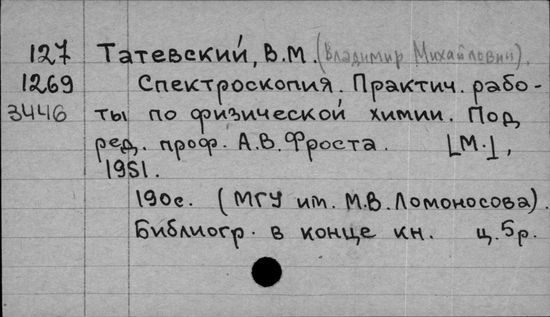 127 Татевский, В.М. (Владимир Михайлович).
1269 Спектроскопия. Практич. рабо-
3446 ты по физической химии. Под
ред. проф. А.В. Фроста. [М.],
1951.
190с. (МГУ им. М.В. Ломоносова).
Библиогр. в конце кн. ц. 5р.